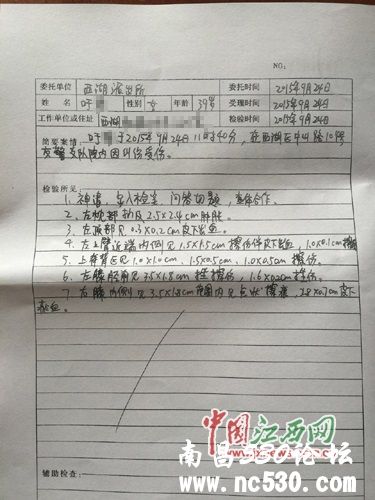 NO:
委托单位 西湖派出所 委托时间 2015年9月24日
姓名 吁 性别 女 年龄 39岁 受理时间 2015年9月24日
工作单位或住址 西湖 检验时间 2015年9月24日
简要案情: 吁 于2015年9月24日11时40分,在西湖区中山路108号
交警支队院内因纠纷受伤。
检验所见:
1、神清,步入检查,问答切题,查体合作。
2、左枕部扪及2.5×2.4cm肿胀。
3、左顶部见0.3×0.2cm皮下出血。
4、左上臂近端内侧见1.5×1.5cm擦伤伴皮下出血,1.0×0.1cm擦
5、上脊背区见1.0×1.0cm、1.5×0.5cm、1.0×0.5cm擦伤。
6、左膝胫前见3.5×1.5cm挫擦伤,1.6×0.2cm挫伤。
7、右膝内侧见3.5×1.8cm范围内见点状擦痕,2.8×0.7cm皮下
出血。
中国江西网
www.jxnews.com.cn
南昌530论坛
www.nc530.com
辅助检查: